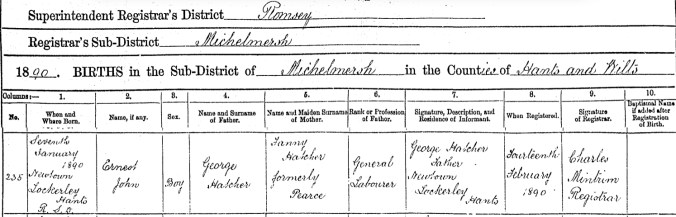 Superintendent Registrar's District Romsey
Registrar's Sub-District Michelmersh
1890. BIRTHS in the Sub-District of Michelmersh in the Counties of Hants and Wilts
Columns:— 1. 2. 3. 4. 5. 6. 7. 8. 9. 10.
No. When and Where Born. Name, if any. Sex. Name and Surname of Father. Name and Maiden Surname of Mother. Rank or Profession of Father. Signature, Description, and Residence of Informant. When Registered. Signature of Registrar. Baptismal Name if added after Registration of Birth.
235
Seventh
January
1890
Newtown
Lockerley
Hants
R. S. D.
Ernest
John
Boy
George
Hatcher
Fanny
Hatcher
formerly
Pearce
General
Labourer
George Hatcher
Father
Newtown
Lockerley
Hants
Fourteenth
February
1890
Charles
Mintrim
Registrar